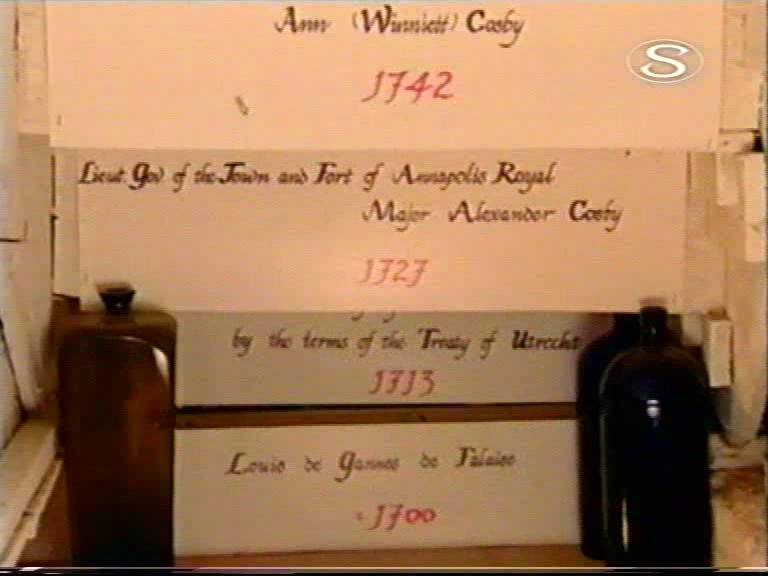 Ann (Winniett) Cosby
1742
S
Lieut Gov of the Town and Fort of Annapolis Royal
Major Alexander Cosby
1727
by the terms of the Treaty of Utrecht
1713
Louis de Gannes de Falaise
1700